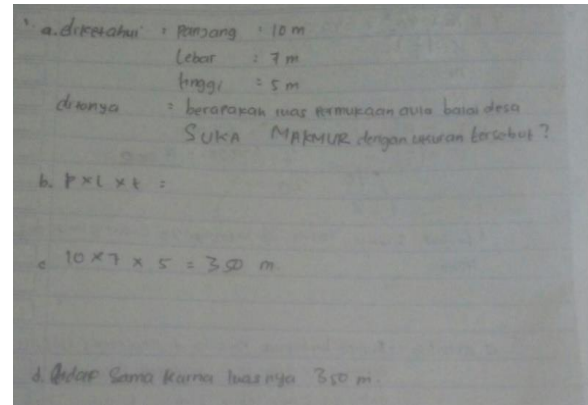 a. diketahui : Panjang : 10 m
Lebar : 7 m
tinggi : 5 m
ditanya : berapakah luas permukaan aula balai desa
SUKA MAKMUR dengan ukuran tersebut ?
b. P x l x t :
c 10 x 7 x 5 = 350 m
d. tidak Sama Karna luasnya 350 m.